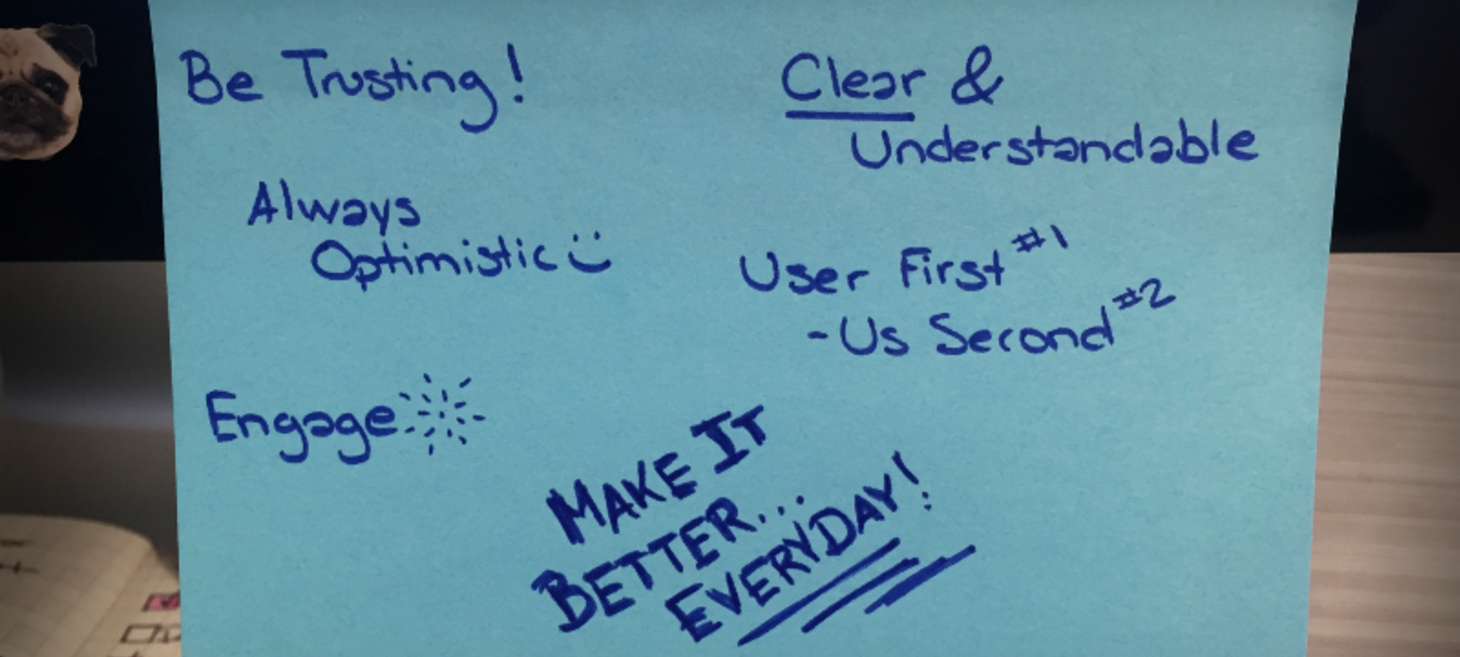 Be Trusting!
Always
Optimistic
Engage
Clear &
Understandable
User First #1
-Us Second #2
MAKE IT
BETTER...
EVERYDAY!